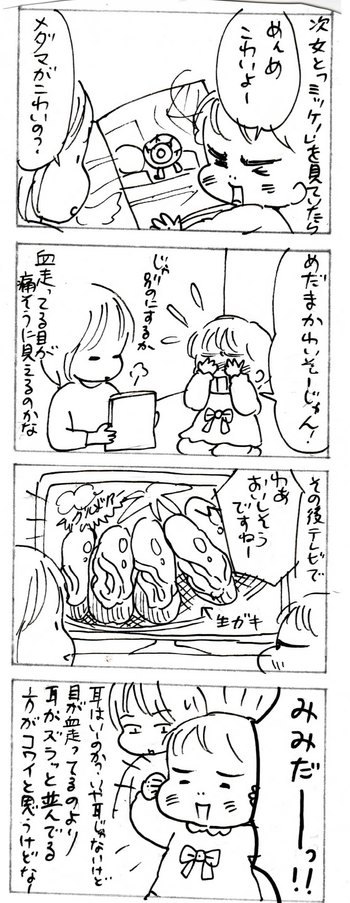 次女と「ミッケ!」を見ていたら
めんめ
こわいよー
メダマがこわいの?
めだまかわいそーじゃん!
じゃ
別のにするか
血走ってる目が
痛そうに見えるのかな
その後テレビで
わあ
おいしそう
ですねー
グルメリポ
←生ガキ
みみだーーっ!!
耳はいいのか？いや耳じゃないけど
目が血走ってるのより
耳がズラッと並んでる
方がコワイと思うけどなー